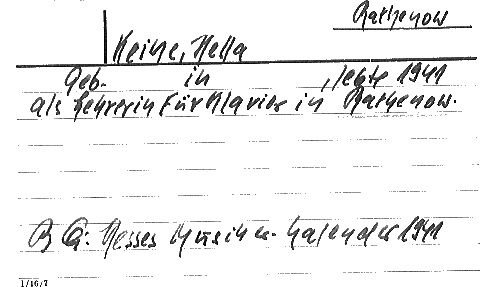 Rathenow
Heise, Hella
Geb. in , lebte 1941
als Lehrerin für Klavier in Rathenow.
B Q: Hesses Musiker-Kalender 1941
1/16/7